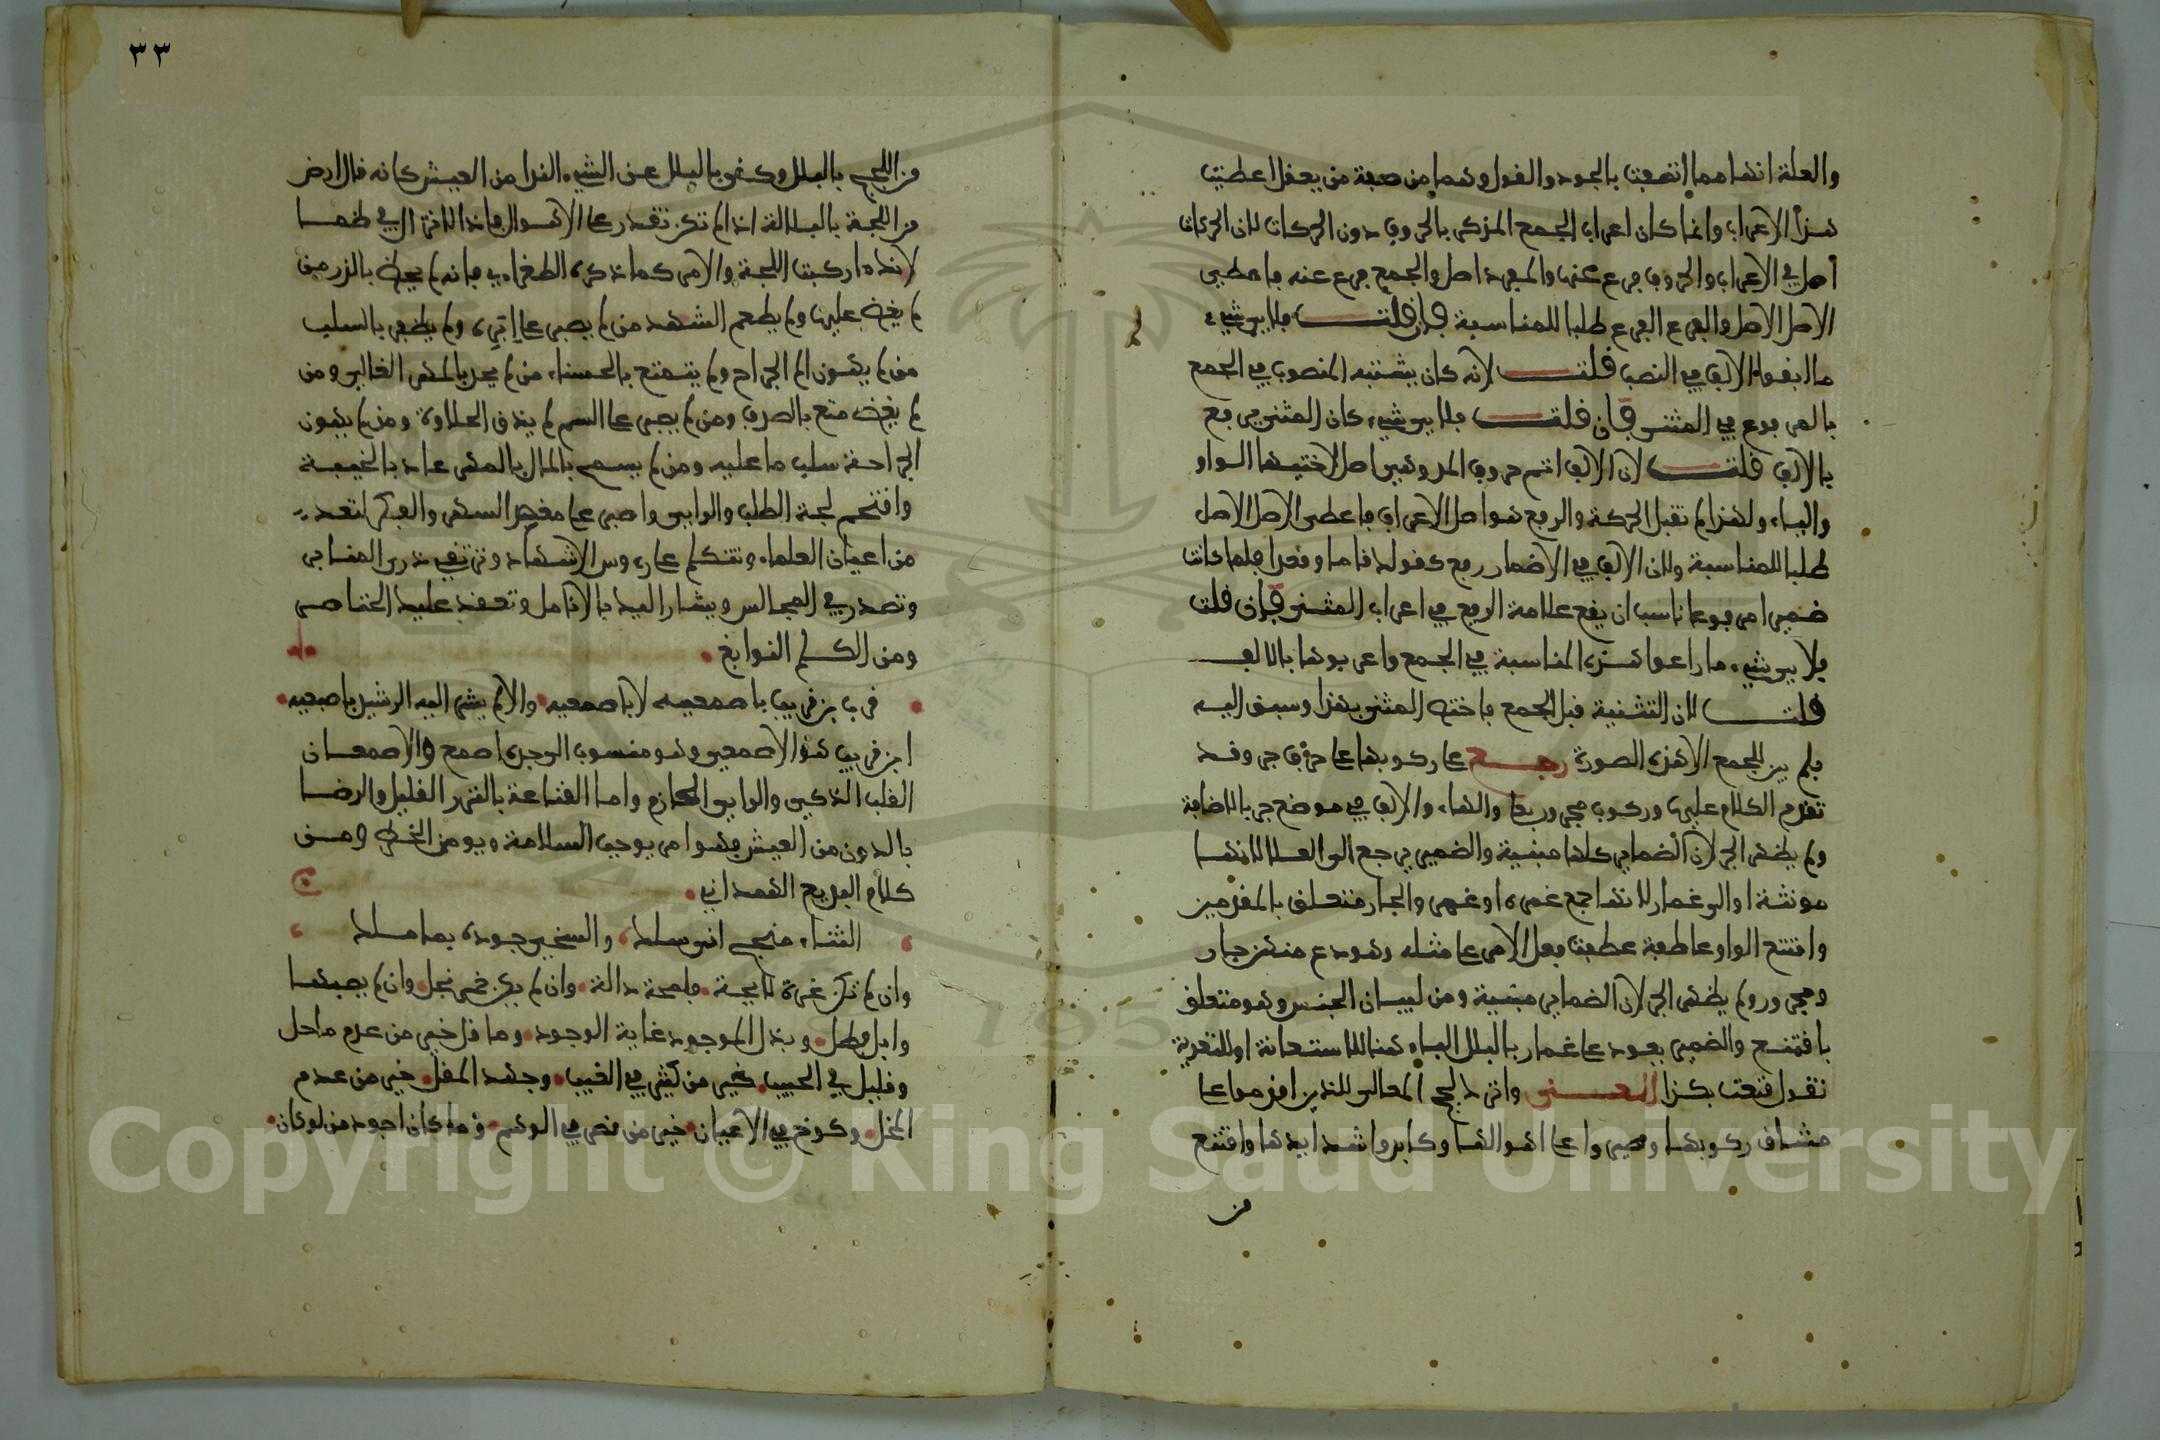 والعلة انهما مما اتصفت بالجود والقول وهما من صفة من يعقل اعطيت
هذا الاعراب وانما كان اعراب الجمع المذكر بالحروف دون الحركات لان الحركات
اصل في الاعراب والحروف فرع عنها والمفرد اصل والجمع فرع عنه فاعطي
الاصل الاصل والفرع الفرع طلبا للمناسبة فان قلت فلاي شيء
ما ابقوا الالف في النصب قلت لانه كان يشتبه المنصوب في الجمع
بالمرفوع في المثنى فان قلت فلاي شيء كان المثنى يرفع
بالالف قلت لان الالف اتم حروف المد وهي اصل لاختيها الواو
والياء ولهذا لم تقبل الحركة والرفع هو اصل الاعراب فاعطي الاصل الاصل
طلبا للمناسبة ولان الالف في الاضمار رفع كقولك قاما وقعدا فلما كانت
ضميرا مرفوعا ناسب ان يقع علامة الرفع في اعراب المثنى فان قلت
فلاي شيء ما راعوا هذه المناسبة في الجمع واعربوها بالالف
قلت لان التثنية قبل الجمع فاختص المثنى بهذا وسبق اليه
فلم يبق للجمع الا هذه الصورة رجع على ركوبها على حرف جر وقد
تقدم الكلام عليها وركوب مجرور بها والهاء والالف في موضع جر بالاضافة
ولم يظهر الجر لان الضماير كلها مبنية والضمير يرجع الى العلا لانها
مونثة او الى غمار لانها جمع غمرة او غمر والجار متعلق بالمقدمين
واقتنع الواو عاطفة عطفت فعل الامر على مثله وهو دع منهن جار
ومجرور ولم يظهر الجر لان الضماير مبنية ومن لبيان الجنس وهو متعلق
باقتنع والضمير يعود على غمار بالبلل الباء هنا للاستعانة او للتعدية
تقول قنعت بكذا المعنى واترك لجج المعالي للذين اقدموا على
مشاق ركوبها وصبروا على اهوالها وكابدوا شدايدها واقتنع
من
٣٣
من اللجج بالبلل وكنى بالبلل عن الشيء النزر من العيش كانه قال ارض
من اللجة بالبلالة اذا لم تكن تقدر على الاهوال فاذا لا تزال في ظما
لانك ما ركبت اللجة والامر كما ذكره الطغراءي فانه لم يحظ بالدر من
لم يغص عليها ولم يطعم الشهد من لم يصبر على ابره ولم يظفر بالسلب
من لم يهون الم الجراح ولم يتمتع بالحسناء من لم يجد بالمهر الغالي ومن
لم يغض متع بالصرف ومن لم يصبر على السم لم يذق الحلاوة ومن لم يهون
الجراحة سلب ما عليه ومن لم يسمح بالمال بالمهر عاد بالخيبة
واقتحم لجة الطلب والراي واصبر على السهر والفكر لتعد
من اعيان العلماء وتتكلم على روس الاشهاد وترتقي ذرى المنابر
وتصدر في المجالس ويشار اليك بالانامل وتعقد عليك الخناصر
ومن الكلم النوابغ
قرب بن قريب باصمعيه لا باصمعيه والا لم يشر اليه الرشيد باصبعيه
ابن قريب هو الاصمعي وهو منسوب الى جده اصمع والاصمعان
القلب الذكي والراي الحازم واما القناعة بالنزر القليل والرضا
بالدون من العيش فهو امر يوجب السلامة ويومن الخطر ومن
كلام البديع الهمداني
الثناء منجح انى سلك والسخي جوده بما ملك
وان لم تكن غرة لايحة فلمحة دالة وان لم يكن خمر فخل وان لم يصبها
وابل فطل وبذل الموجود غاية الوجود وما قل خير من عدم ماجل
وقليل في الجيب خير من كثير في الغيب وجهد المقل خير من عدم
المخل وكوخ في الاعيان خير من قصر في الوهم وما كان اجود من لو كان